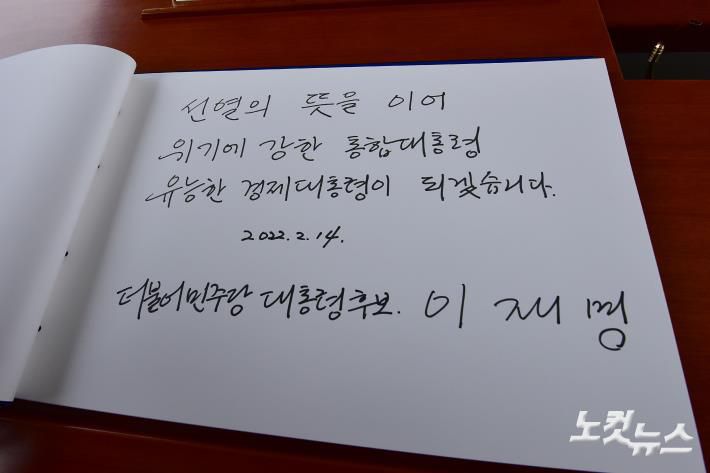 선열의 뜻을 이어
위기에 강한 통합대통령
유능한 경제대통령이 되겠습니다.
2022.2.14.
더불어민주당 대통령후보. 이재명
노컷뉴스